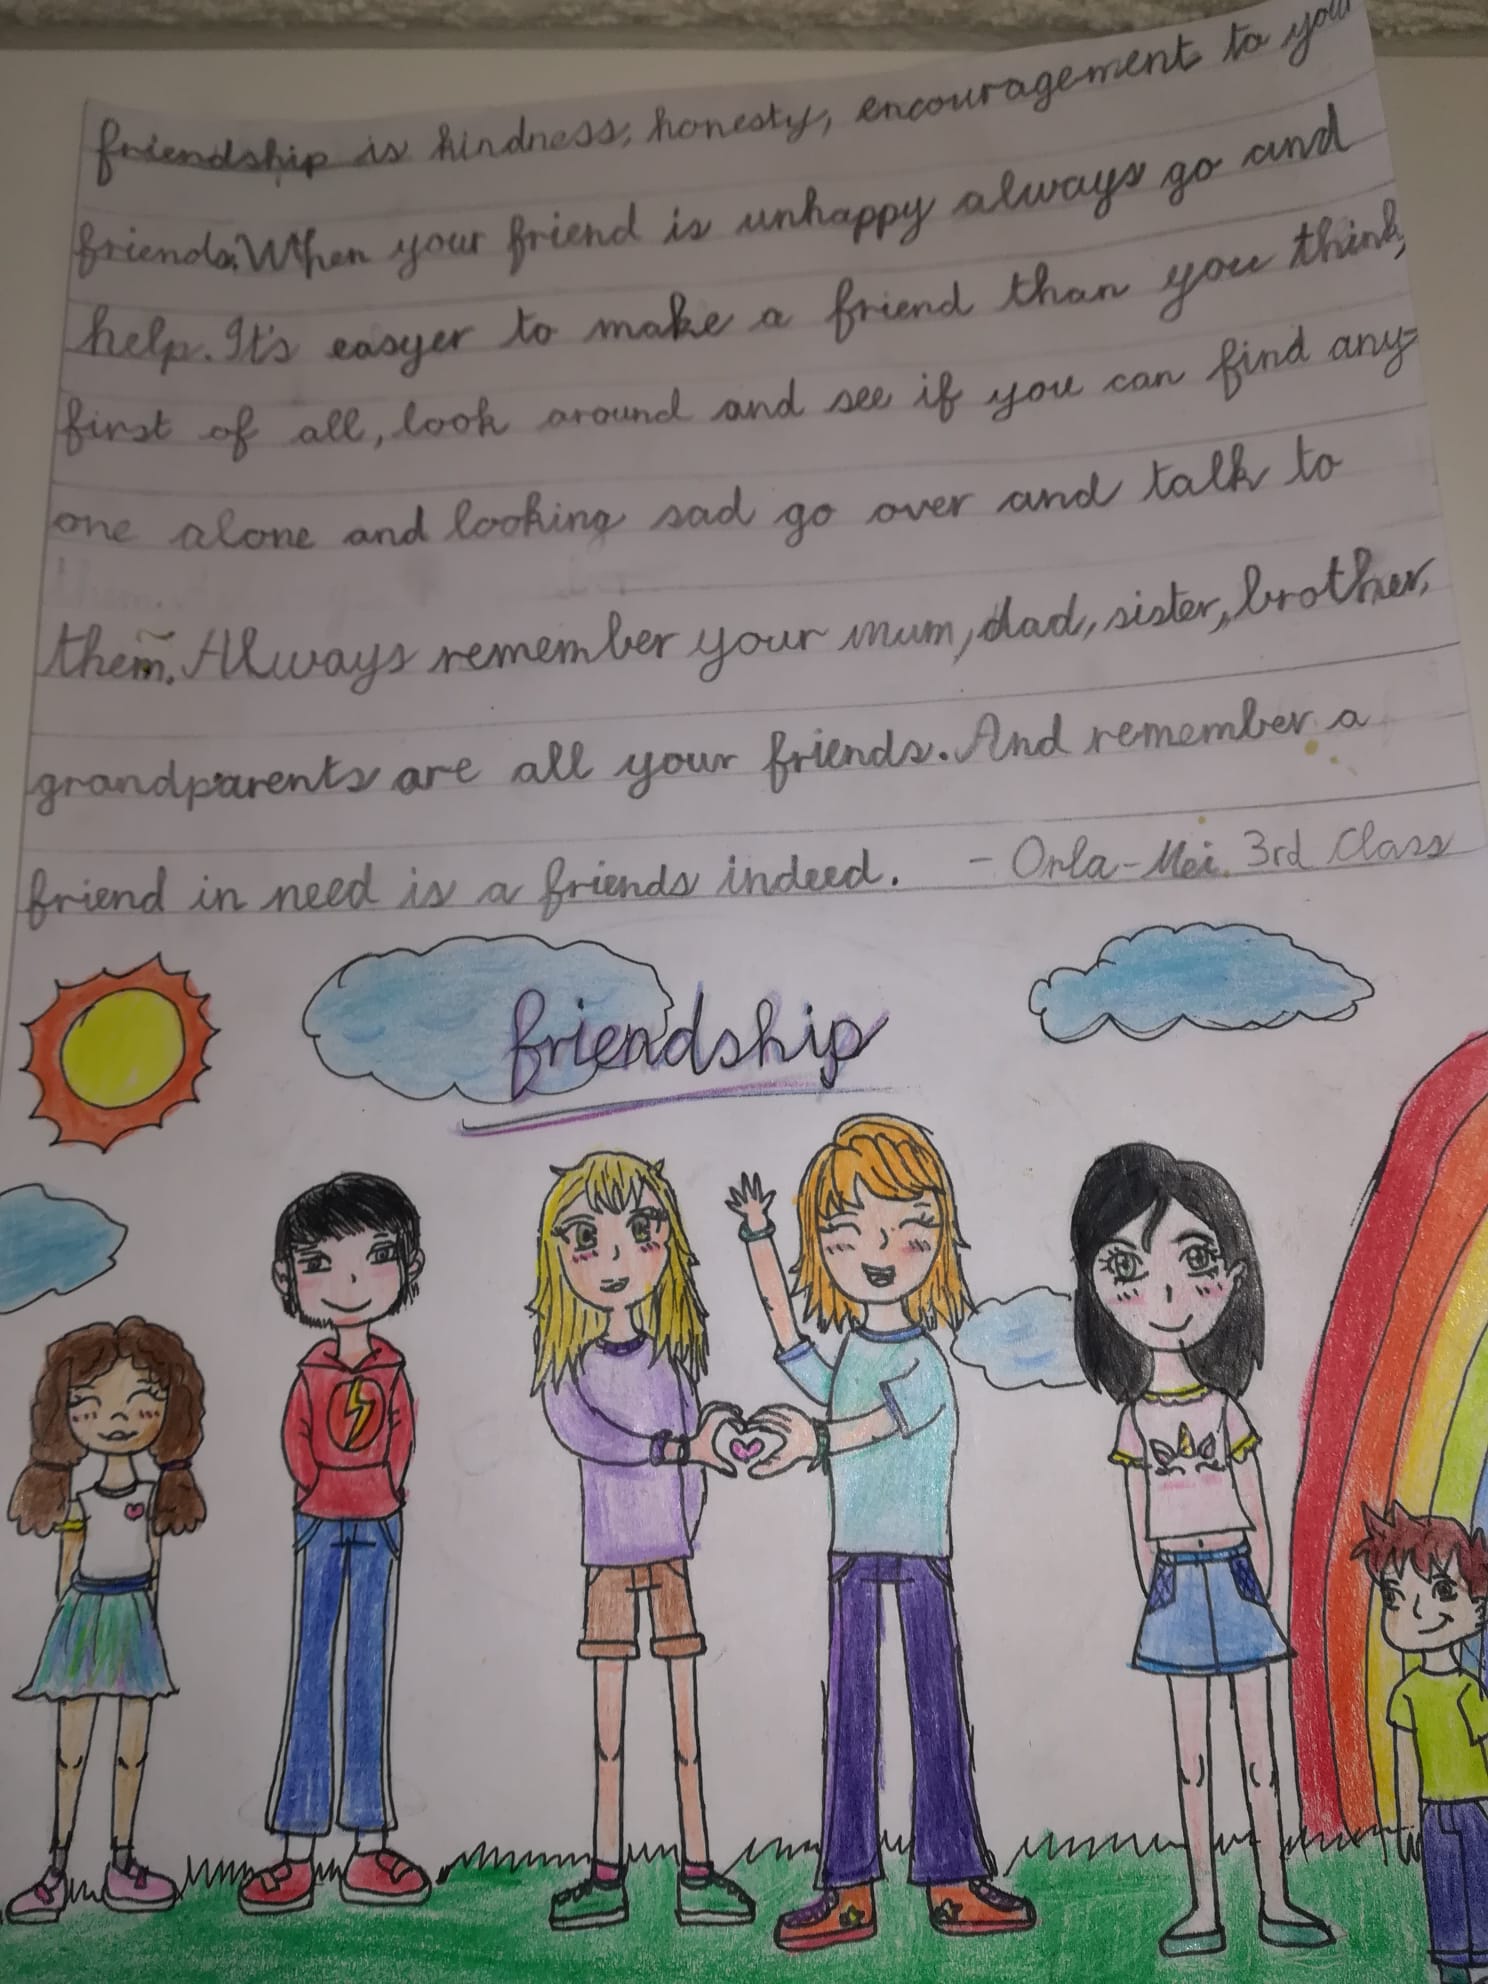 friendship is kindness, honesty, encouragement to your
friends. When your friend is unhappy always go and
help. It's easyer to make a friend than you think,
first of all, look around and see if you can find any-
one alone and looking sad go over and talk to
them. Always remember your mum, dad, sister, brother,
grandparents are all your friends. And remember a
friend in need is a friends indeed. - Orla-Mei. 3rd Class
friendship